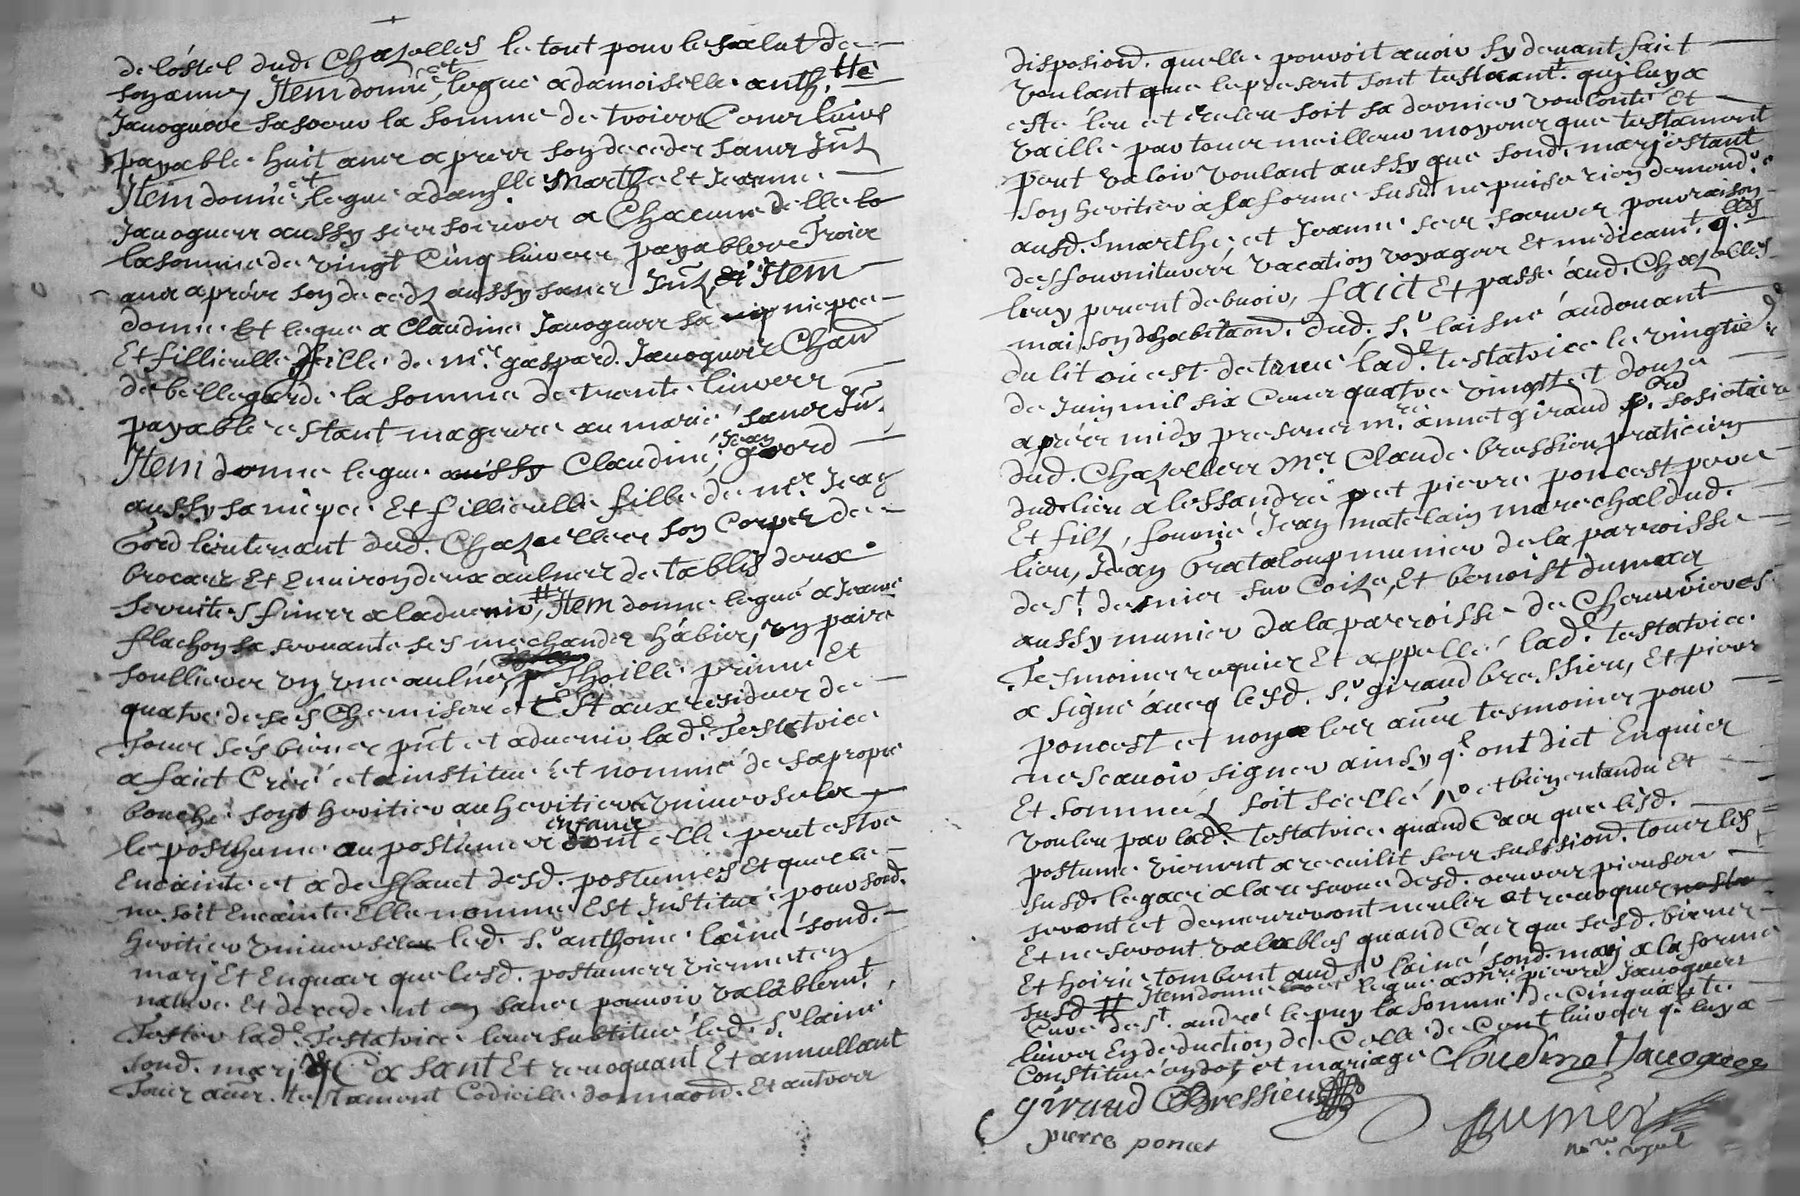 de lostel dud. Chazelles le tout pour le salut de
son ame, Item donne et legue a damoiselle anth.tte
Jauoguere sa soeur la somme de troies Cens liures
payable huit ans apres son decedes sans Int.
Item donne et legue a dam.lle Marthe et Jeanne
Jauogues aussy ses soeures a Chacune delle
la somme de vingt Cinq liures payables Trois
ans apres son decedz aussy sans Int. Item
donne et legue a Claudine Jauogues sa niepce
Et fillieulle fille de m.r gaspard Jauogues
de bellegarde la somme de trente liures
payable estant mageure au marié sans Int.
Item donne legue Claudine Jean gord
aussy sa niepce Et fillieulle fille de m.r Jean
Gord lieutenant dud. Chazelles son Corps de
brocar Et Enuiron deux aulnes de tablis deux
seruites fines a laduenir, # Item donne legué a Jeanne
flachon sa seruante ses mechandes habies, vn paire
soullieres vn vne aulne, Thoille prime Et
quatre de ses Chemises, et Est aux residues de
Tous ses bienes p̃nt et aduenir lad.e Testatrice
a faict Créé et a institué et nommé de sa propre
bouche sont heritier au heritieres vniuersales
le posthume au postumes enfans dont elle peut estre
Encainte et a deffauct desd. postumes Et quelle
ne soit Encainte Elle nomme Est Institué pour sond.
heritier vniuersilee led. S.r anthoine lainé sond.
marj Et Enquar que lesd. postumes viennent en
nature Et decedent sans pouuoir valablem.t
Tester lad.e Testatrice leur subtitué led. S.r lainé
sond. marj Casant Et reuoquant Et annullant
Tous aues. testament Codicille donnaon. Et autres
disposiond. quelle pouuoit auoir sy deuant faict
voulant que le present sont testaant. quj luy a
este leu et releu soit sa dernier voulonte Et
vaille par tous meilleur moyenes que testament
peut valoir voulant aussy que sond. marj estant
son heritier a la forme susd. ne puise rien demand.r
ausd. marthe, et Jeanne ses soeures pour raison
des fournitures vacation voyages Et medicam.t q.lles
leuy peuent debuoir, faict Et passé aud. Chazelles
maison dhabitaond. dud. S.r laisné au deuant
du lit ou est detenue lad.e testatrice le vingtie.e
de Juin mil six Cens quatre vingtz et douze
apres midy presens m.re annet giraud p.bre sosietaire
dud. Chazelles M.r Claude bressieu praticien
dudelieu alessandre pet pierre poncest pere
Et filz, fouonié Jean matelain marechal dud.
lieu, Jean Grataloup munier de la parroisse
de S.t denier sur Coize, Et benoist dumax
aussy munier de la parroisse de Cheuvieres
Tesmoines requies Et appellé lad.e testatrice
a signé auecq lesd. S.r giraud bressieu, Et pierre
poncest et non les aues tesmoines pour
ne scauoir signer ainsy q.l ont dict Enquier
Et sommés soit scellé No et bien entandu Et
voulu par lad.e testatrice quand Cas que lesd.
postume vienent a recuilit ses sussiond. tous les
susd. legaes a la reserue desd. oeuures pieuses
seront et demeureront neules et reuoques
Et ne seront valables quand Cas que sesd. bienes
Et hoirie tombent aud. S.r lainé sond. marj a la forme
susd. # Item donne legue a m.re pierre Jauoguers
Curé de S.t andré le puy la somme de Cinquante
liures En deduction de Celle de Cent liures q.l luy a
Constitué en dot et mariage Claudine Jauogues
giraud Bressieu
pierre poncet
no.re royal